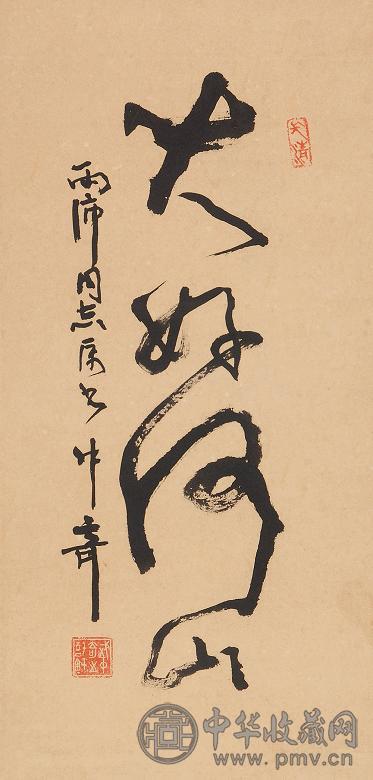 大好河山
雨沛同志属书 中奇
中华收藏网
www.pmv.cn